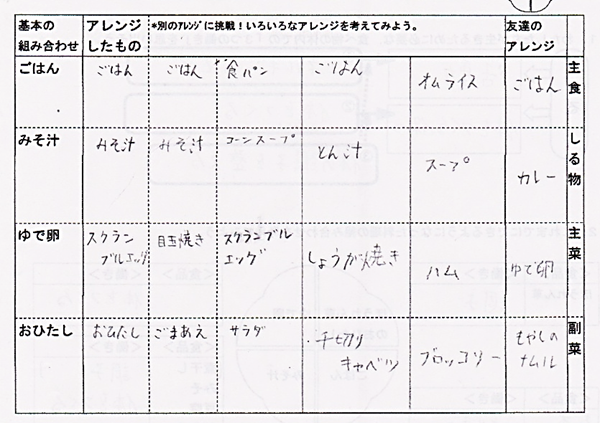 基本の
組み合わせ
アレンジ
したもの
*別のアレンジに挑戦！いろいろなアレンジを考えてみよう。
友達の
アレンジ
ごはん
ごはん
ごはん
食パン
ごはん
オムライス
ごはん
主食
みそ汁
みそ汁
みそ汁
コーンスープ
とん汁
スープ
カレー
しる物
ゆで卵
スクラン
ブルエッグ
目玉焼き
スクランブル
エッグ
しょうが焼き
ハム
ゆで卵
主菜
おひたし
おひたし
ごまあえ
サラダ
千切り
キャベツ
ブロッコリー
もやしの
ナムル
副菜